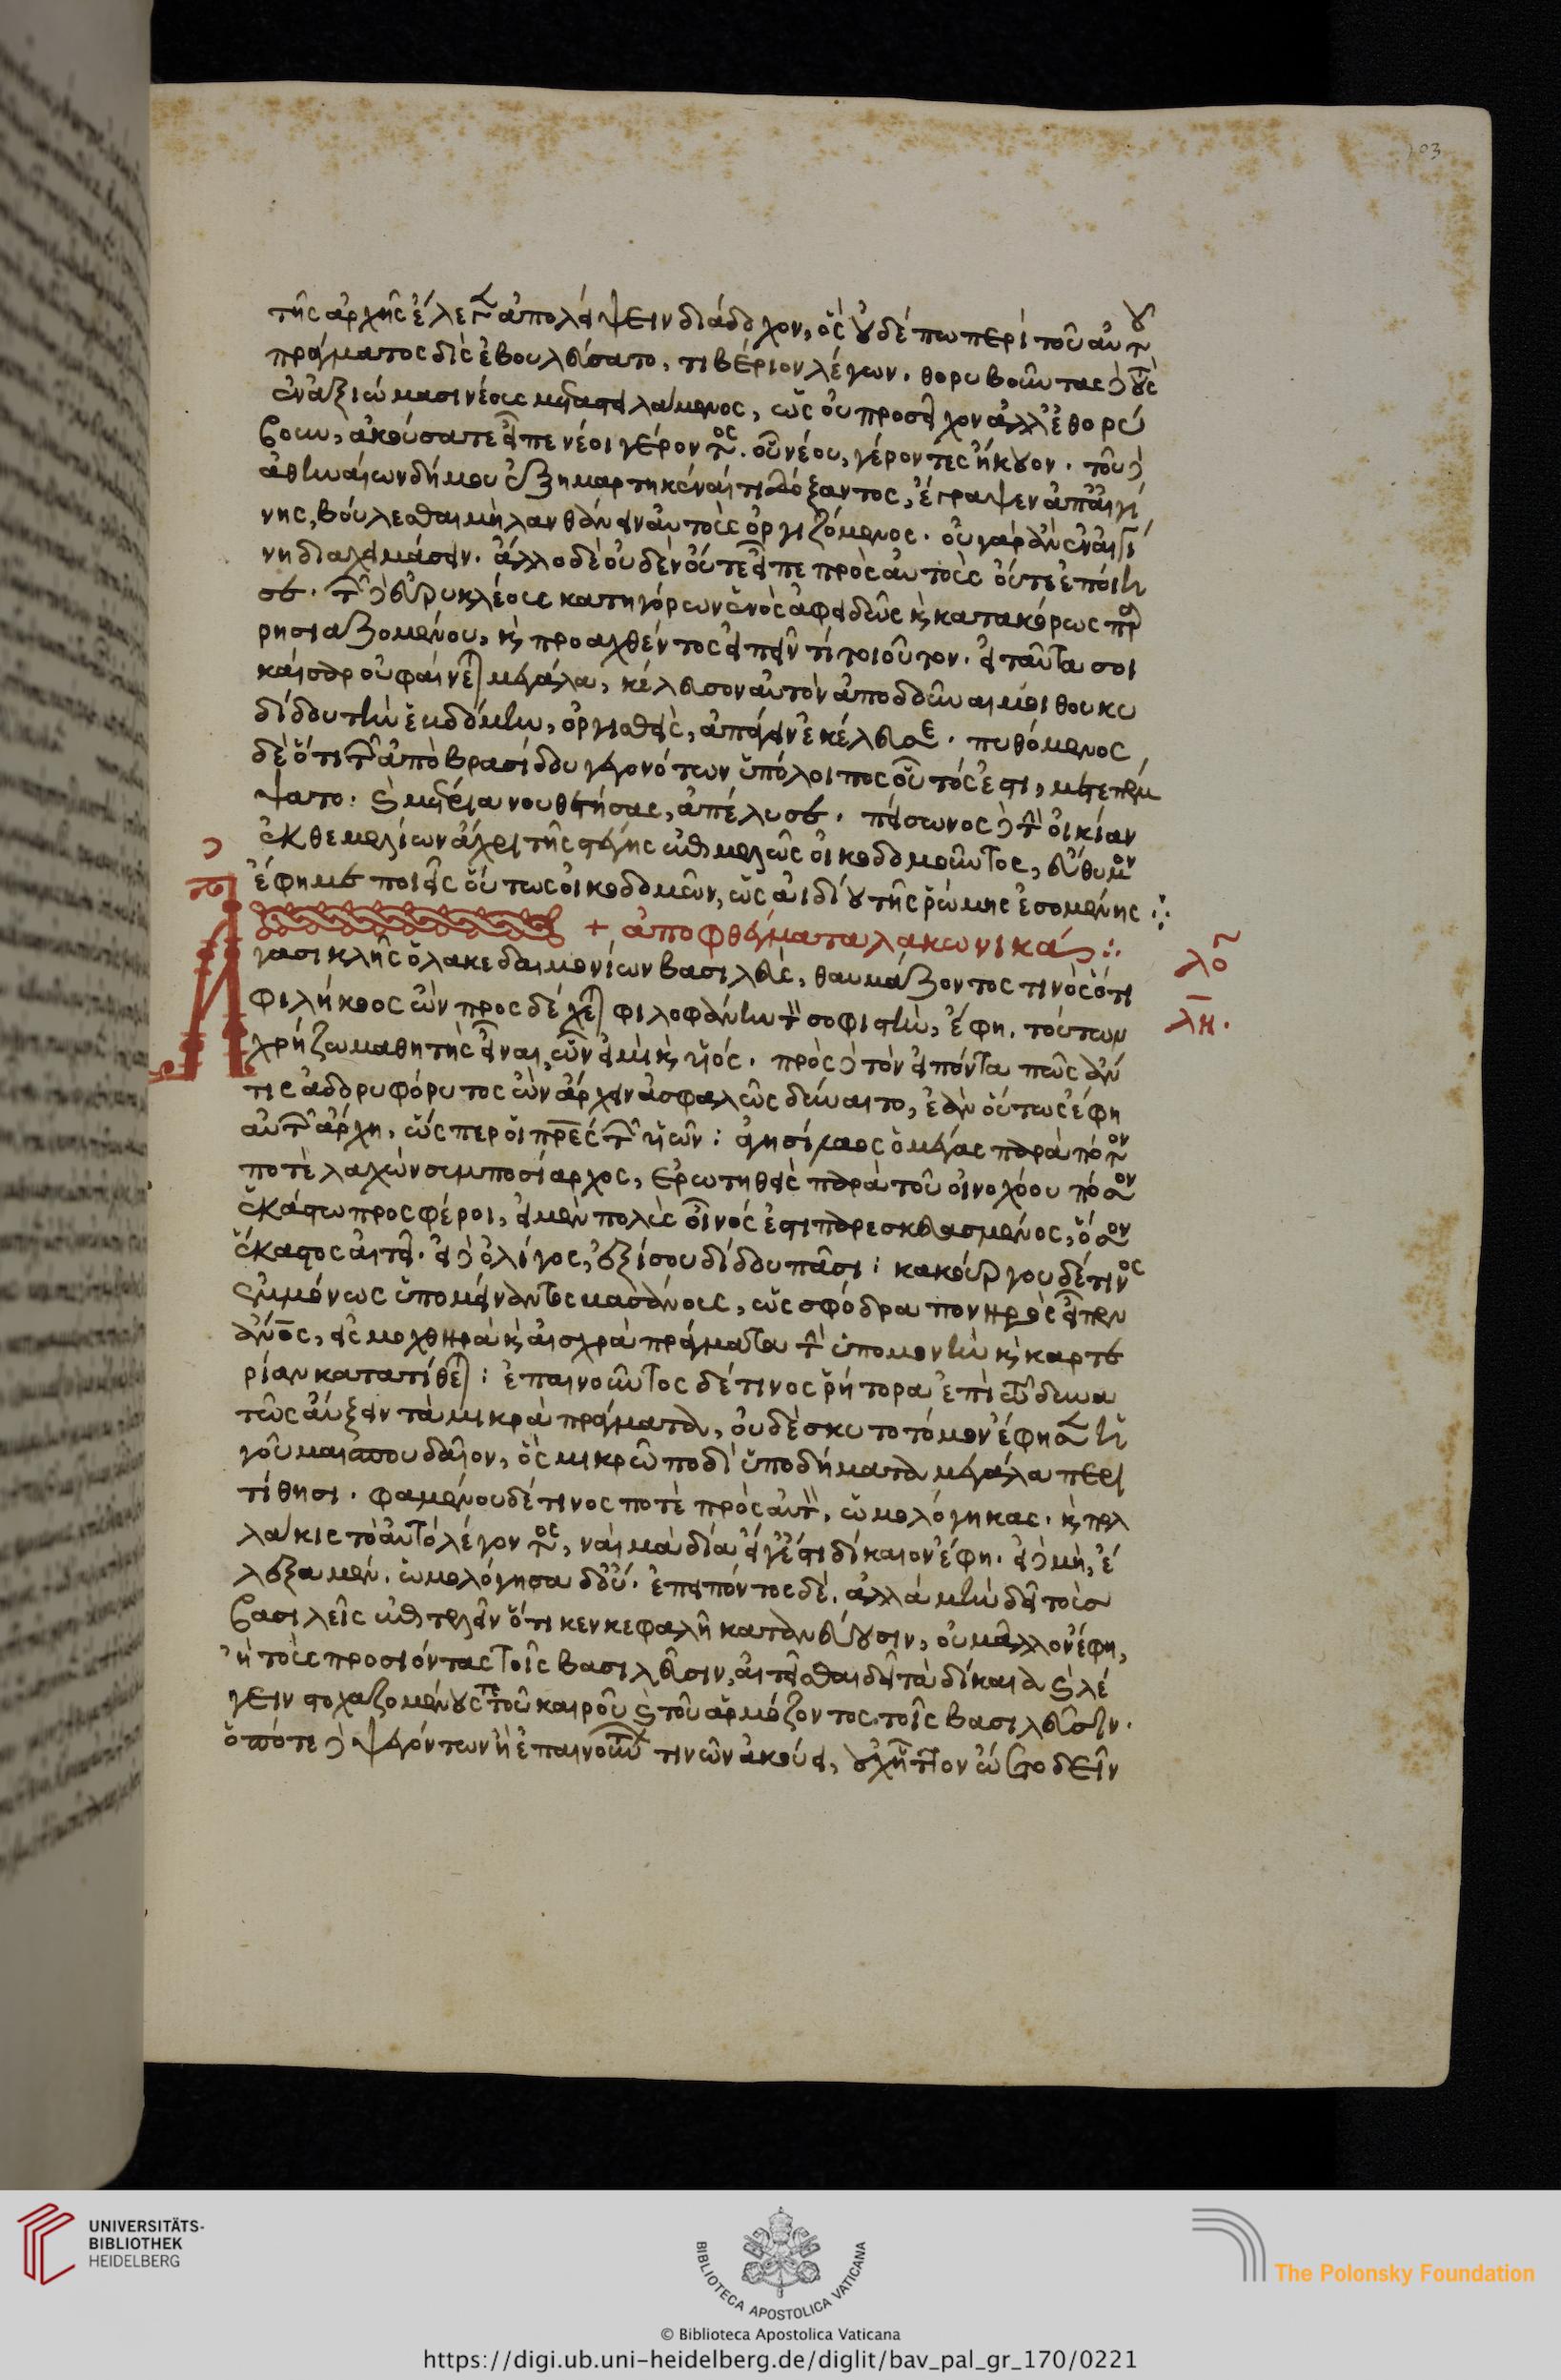 203
τῆς ἀρχῆς ἔλεγεν ἀπολείψειν διάδοχον, ὃς οὐδέπω περὶ τοῦ αὐτοῦ
πράγματος δὶς ἐβουλεύσατο, τιβέριον λέγων. θορυβοῦντας δὲ τοὺς
ἐν ἀξιώμασι νέους καταστεῖλαι βουλόμενος, ὡς οὐ προσεῖχον ἀλλ' ἐθορύ
βουν, ἀκούσατε εἶπε νέοι γέροντος. οὗ νέου, γέροντες ἤκουον. τοῦ δὲ
ἀθηναίων δήμου ἐξημαρτηκέναί τι δόξαντος, ἔγραψεν ἀπ' αἰγί
νης, βούλεσθαι μὴ λανθάνειν αὐτοὺς ὀργιζόμενος. οὐ γὰρ ἂν ἐν αἰγί
νῃ διαχειμάσειν. ἄλλο δὲ οὐδὲν οὔτε εἶπε πρὸς αὐτοὺς οὔτε ἐποίη
σε. τῶν δὲ εὐρυκλέους κατηγόρων ἑνὸς ἀφειδῶς καὶ κατακόρως παρ
ρησιαζομένου, καὶ προαχθέντος εἰπεῖν τί τοιοῦτον. εἰ ταῦτα σοι
καῖσαρ οὐ φαίνεται μεγάλα, κέλευσον αὐτὸν ἀποδοῦναι μοι θουκυ
δίδου τὴν ἑβδόμην, ὀργισθεὶς, ἀπάγειν ἐκέλευσε. πυθόμενος
δὲ ὅτι τῶν ἀπὸ βρασίδου γεγονότων ὑπόλοιπος οὗτός ἐστι, μετεπέμ
ψατο. καὶ μέτρια νουθετήσας, ἀπέλυσε. πείσωνος δὲ τὴν οἰκίαν
ἐκ θεμελίων ἄχρι τῆς στέγης ἐπιμελῶς οἰκοδομοῦντος, εὔθυμον
ἔφη με ποιεῖς οὕτως οἰκοδομῶν, ὡς ἀιδίου τῆς ῥώμης ἐσομένης :
+ ἀποφθέγματα λακωνικά :
Ἀγασικλῆς ὁ λακεδαιμονίων βασιλεὺς, θαυμάζοντος τινὸς ὅτι
φιλήκοος ὢν προσδέχεται φιλοφάνην τὸν σοφιστὴν, ἔφη. τούτων
χρήζω μαθητὴς εἶναι, ὧν εἰμὶ καὶ υἱός. πρὸς δὲ τὸν εἰπόντα πῶς ἄν
τις ἀδορυφόρητος ὢν ἄρχειν ἀσφαλῶς δύναιτο, ἐὰν οὕτως ἔφη
αὐτῶν ἄρχῃ, ὥσπερ οἱ πρες τῶν υἱῶν : ἀγησίλαος ὁ μέγας παρὰ πότον
ποτὲ λαχὼν συμποσίαρχος, ἐρωτηθεὶς παρὰ τοῦ οἰνοχόου πόσον
ἑκάστω προσφέροι, εἰ μὲν πολὺς οἶνός ἐστι παρεσκευασμένος, ὅσον
ἕκαστος αἰτεῖ. εἰ δὲ ὀλίγος, ἐξίσου δίδου πᾶσι : κακούργου δέ τινος
ἐμμόνως ὑπομείναντος βασάνους, ὡς σφόδρα πονηρὸς εἶπεν
ἄνος, εἰς μοχθηρὰ καὶ αἰσχρὰ πράγματα τὴν ὑπομονὴν καὶ καρτε
ρίαν κατατίθεται : ἐπαινοῦντος δέ τινος ῥήτορα ἐπὶ τῶ δυνα
τῶς αὔξειν τὰ μικρὰ πράγματα, οὐδὲ σκυτοτόμον ἔφησεν ἡ
γοῦμαι σπουδαῖον, ὃς μικρῶ ποδὶ ὑποδήματα μεγάλα περι
τίθησι. φαμένου δέ τινος ποτὲ πρὸς αὐτὸν, ὡμολόγηκας. καὶ πολ
λάκις τὸ αὐτὸ λέγοντος, ναὶ μὰ δία εἴγέ ἐστι δίκαιον ἔφη. εἰ δὲ μὴ, ἔ
λεξα μὲν, ὡμολόγησα δ' οὔ. ἐπειπόντος δὲ, ἀλλὰ μὴν δεῖ τοὺς
βασιλεῖς ἐπιτελεῖν ὅτι κεν κεφαλῇ κατανεύουσιν, οὐ μᾶλλον ἔφη,
ἢ τοὺς προσιόντας τοῖς βασιλεῦσιν, αἰτεῖσθαι δεῖ τὰ δίκαια καὶ λέ
γειν στοχαζομένους τε τοῦ καιροῦ καὶ τοῦ ἁρμόζοντος τοῖς βασιλεῦσιν.
ὁπότε δὲ ψεγόντων ἢ ἐπαινούντων τινῶν ἀκούει, οὐχ ἧττον ᾤετο δεῖν
λη.
UNIVERSITÄTS-
BIBLIOTHEK
HEIDELBERG
BIBLIOTECA APOSTOLICA VATICANA
The Polonsky Foundation
© Biblioteca Apostolica Vaticana
https://digi.ub.uni-heidelberg.de/diglit/bav_pal_gr_170/0221